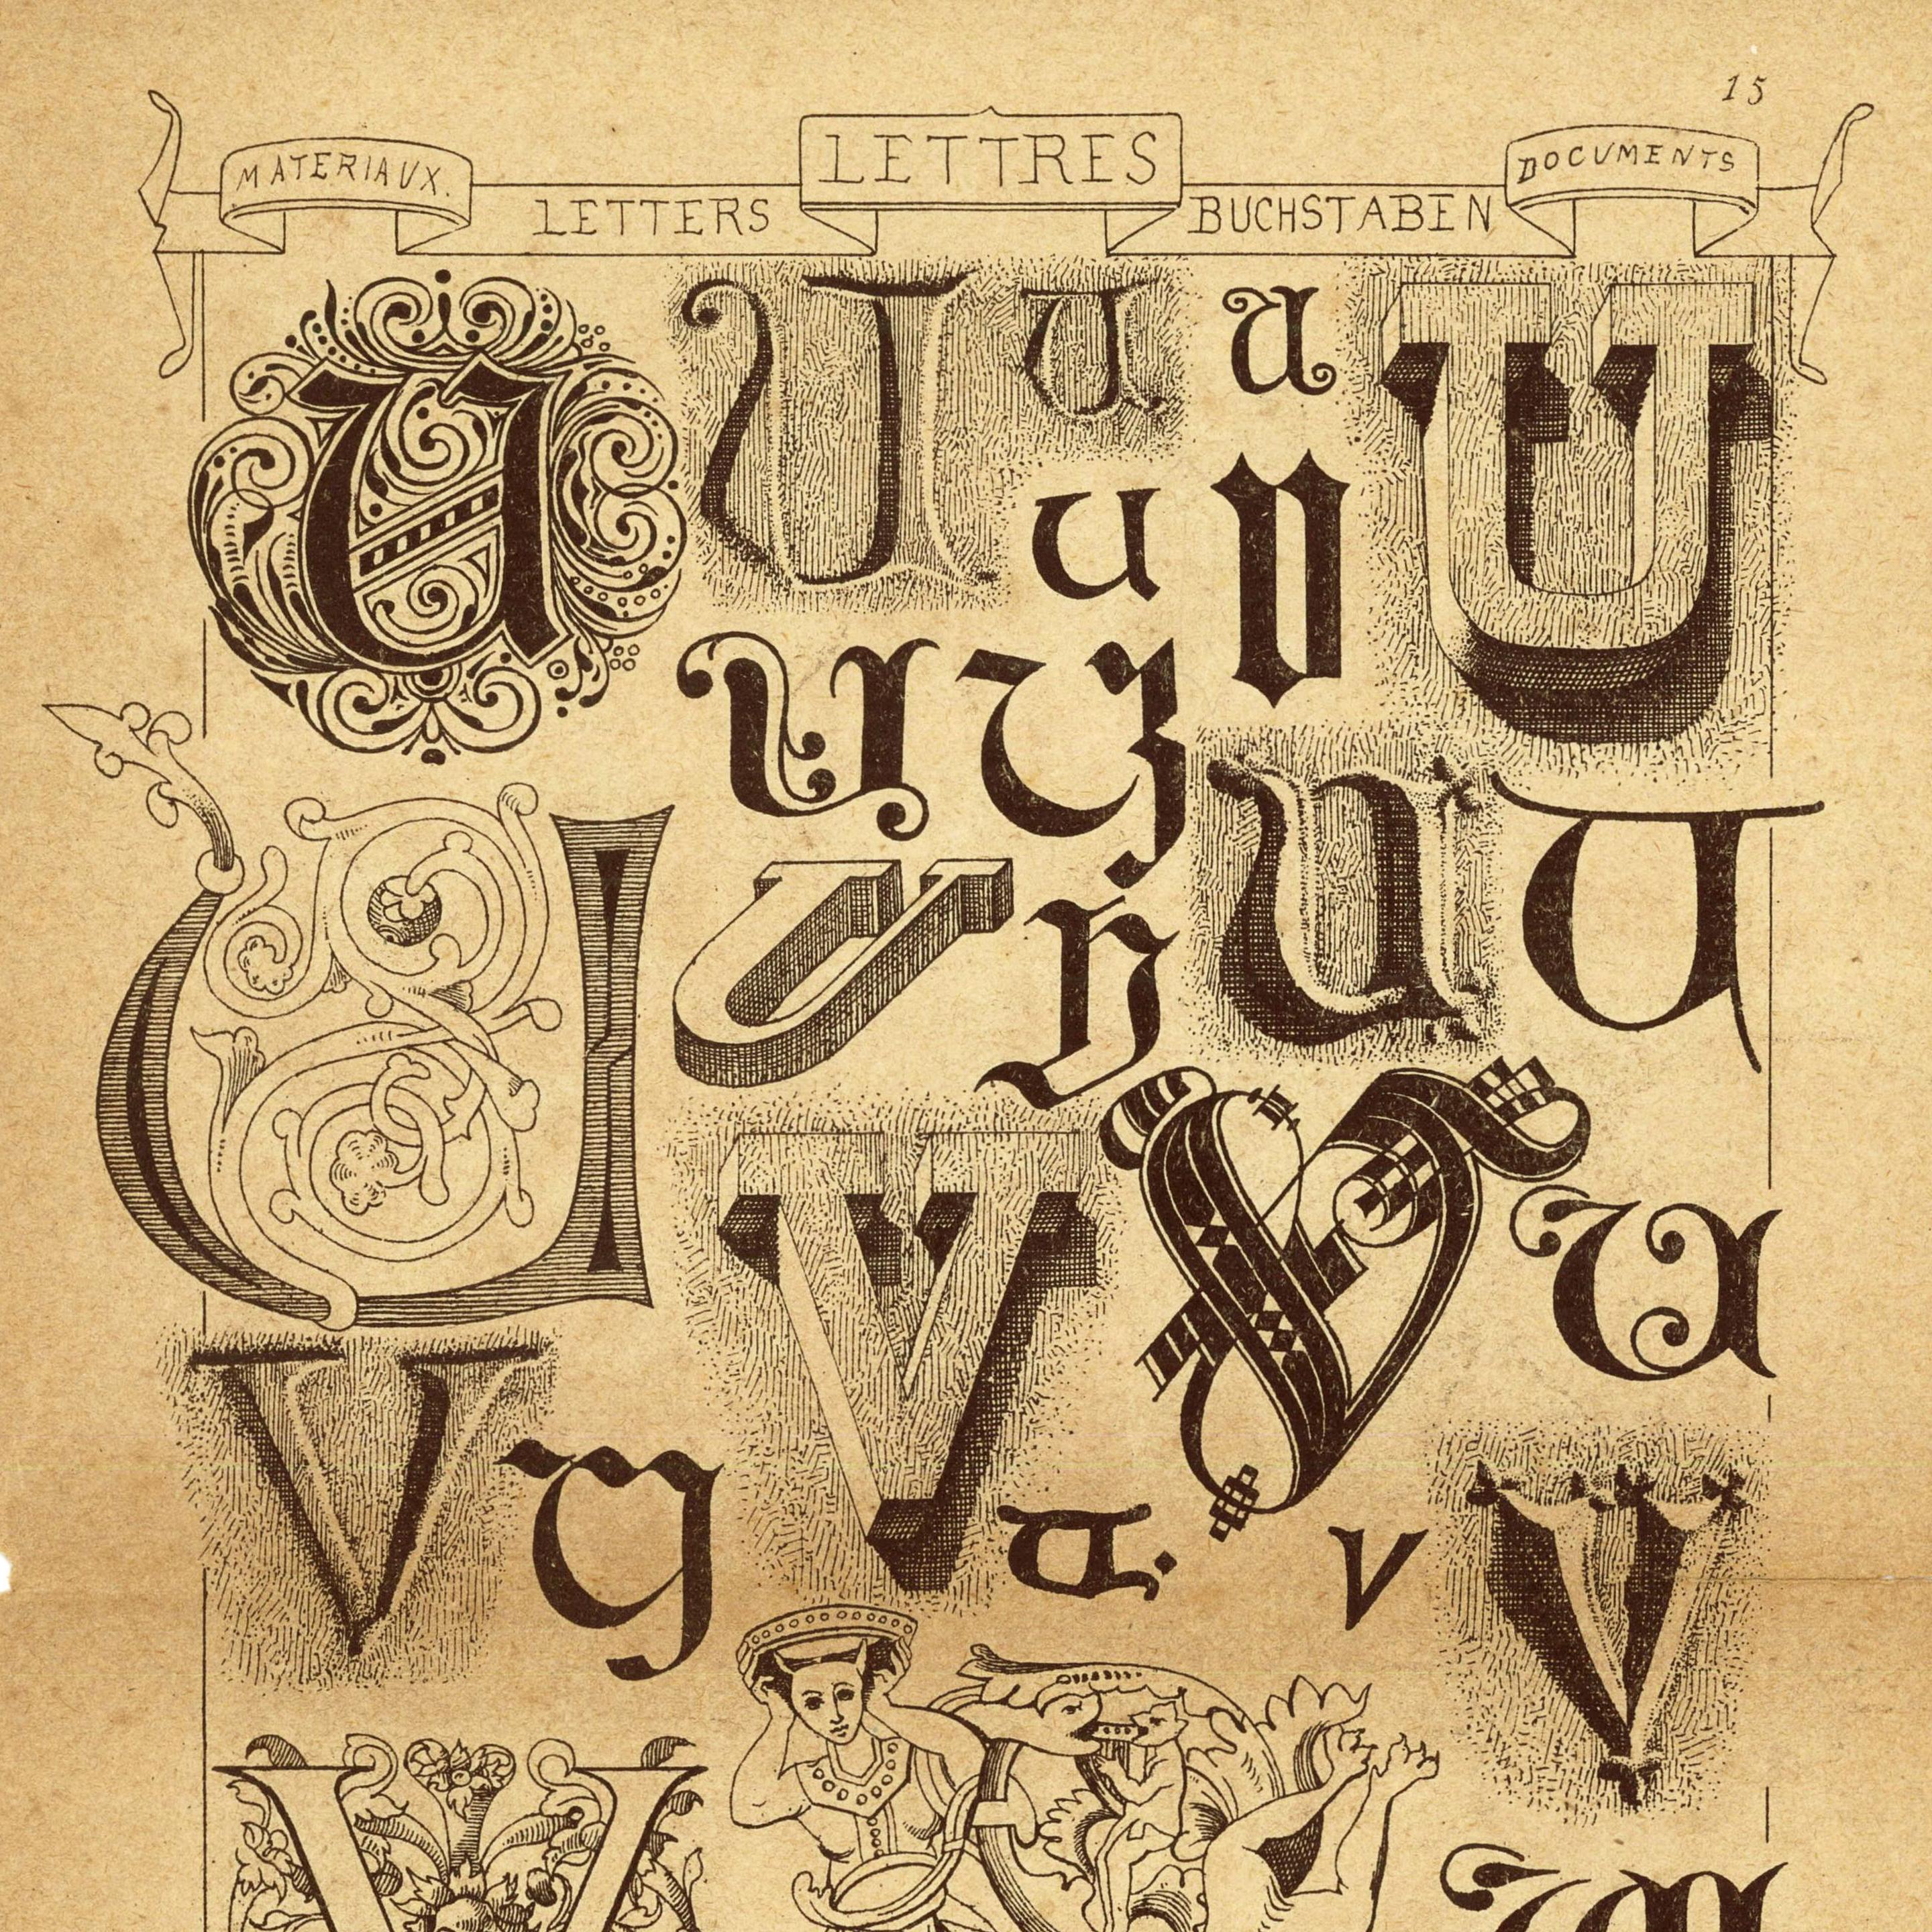 15
MATERIAUX. LETTRES DOCUMENTS
LETTERS BUCHSTABEN
U U U U U
U U
U U U U
U U U
U
V V U
V U U. V V
V